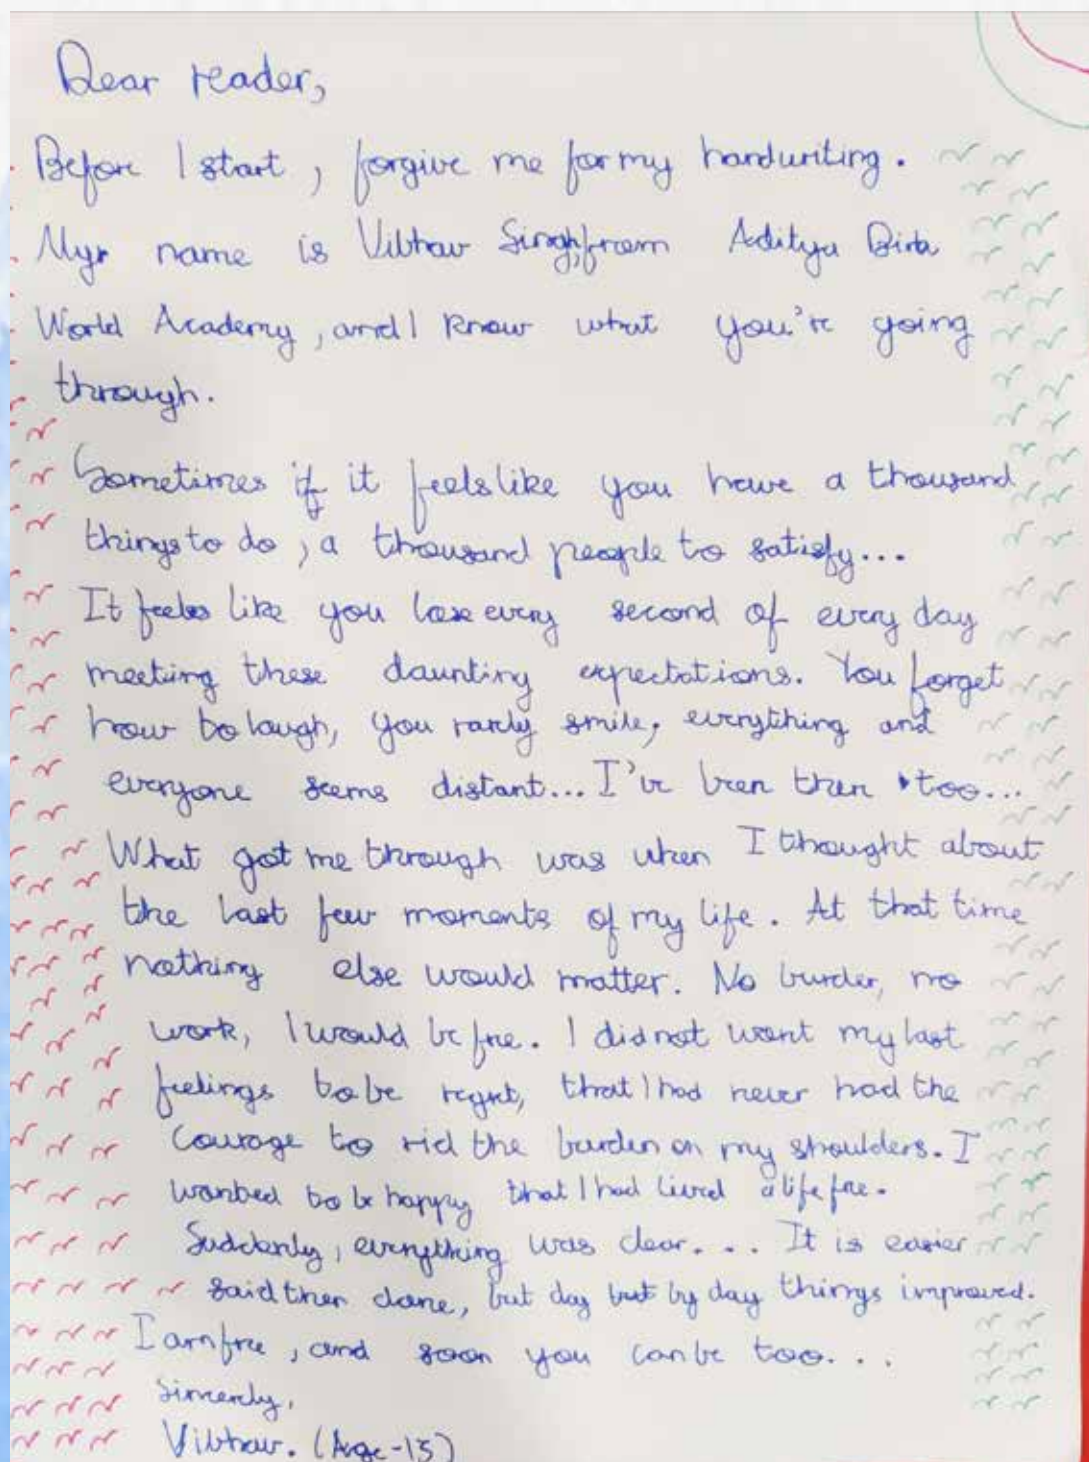 Dear reader,
Before I start, forgive me for my handwriting.
My name is Vibhav Singh, from Aditya Birla
World Academy, and I know what you're going
through.
Sometimes if it feels like you have a thousand
things to do, a thousand people to satisfy...
It feels like you lose every second of every day
meeting these daunting expectations. You forget
how to laugh, you rarely smile, everything and
everyone seems distant... I've been there too...
What got me through was when I thought about
the last few moments of my life. At that time
nothing else would matter. No burden, no
work, I would be free. I did not want my last
feelings to be regret, that I had never had the
courage to rid the burden on my shoulders. I
wanted to be happy that I had lived a life free.
Suddenly, everything was clear.... It is easier
said then done, but day but by day things improved.
I am free, and soon you can be too...
Sincerely,
Vibhav. (Age-15)